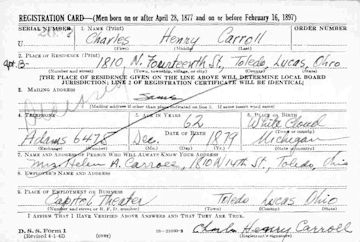 REGISTRATION CARD—(Men born on or after April 28, 1877 and on or before February 16, 1897)
SERIAL NUMBER 1. NAME (Print) ORDER NUMBER
Charles Henry Carroll
(First) (Middle) (Last)
2. PLACE OF RESIDENCE (Print)
Apt. B- 1810 N. Fourteenth St., Toledo, Lucas, Ohio
(Number and street) (Town, township, village, or city) (County) (State)
[THE PLACE OF RESIDENCE GIVEN ON THE LINE ABOVE WILL DETERMINE LOCAL BOARD
JURISDICTION; LINE 2 OF REGISTRATION CERTIFICATE WILL BE IDENTICAL]
3. MAILING ADDRESS
Same
[Mailing address if other than place indicated on line 2. If same insert word same]
4. TELEPHONE 5. AGE IN YEARS 6. PLACE OF BIRTH
62 White Cloud
DATE OF BIRTH
Adams 6478 Dec. 1879 Michigan
7. NAME AND ADDRESS OF PERSON WHO WILL ALWAYS KNOW YOUR ADDRESS
Mrs. Helen A. Carroll, 1810 N 14th St., Toledo, Ohio
8. EMPLOYER'S NAME AND ADDRESS
9. PLACE OF EMPLOYMENT OR BUSINESS
Capitol Theater Toledo Lucas Ohio
(Number and street or R. F. D. number) (Town) (County) (State)
I AFFIRM THAT I HAVE VERIFIED ABOVE ANSWERS AND THAT THEY ARE TRUE.
D. S. S. Form 1
(Revised 4-1-42)
Charles Henry Carroll